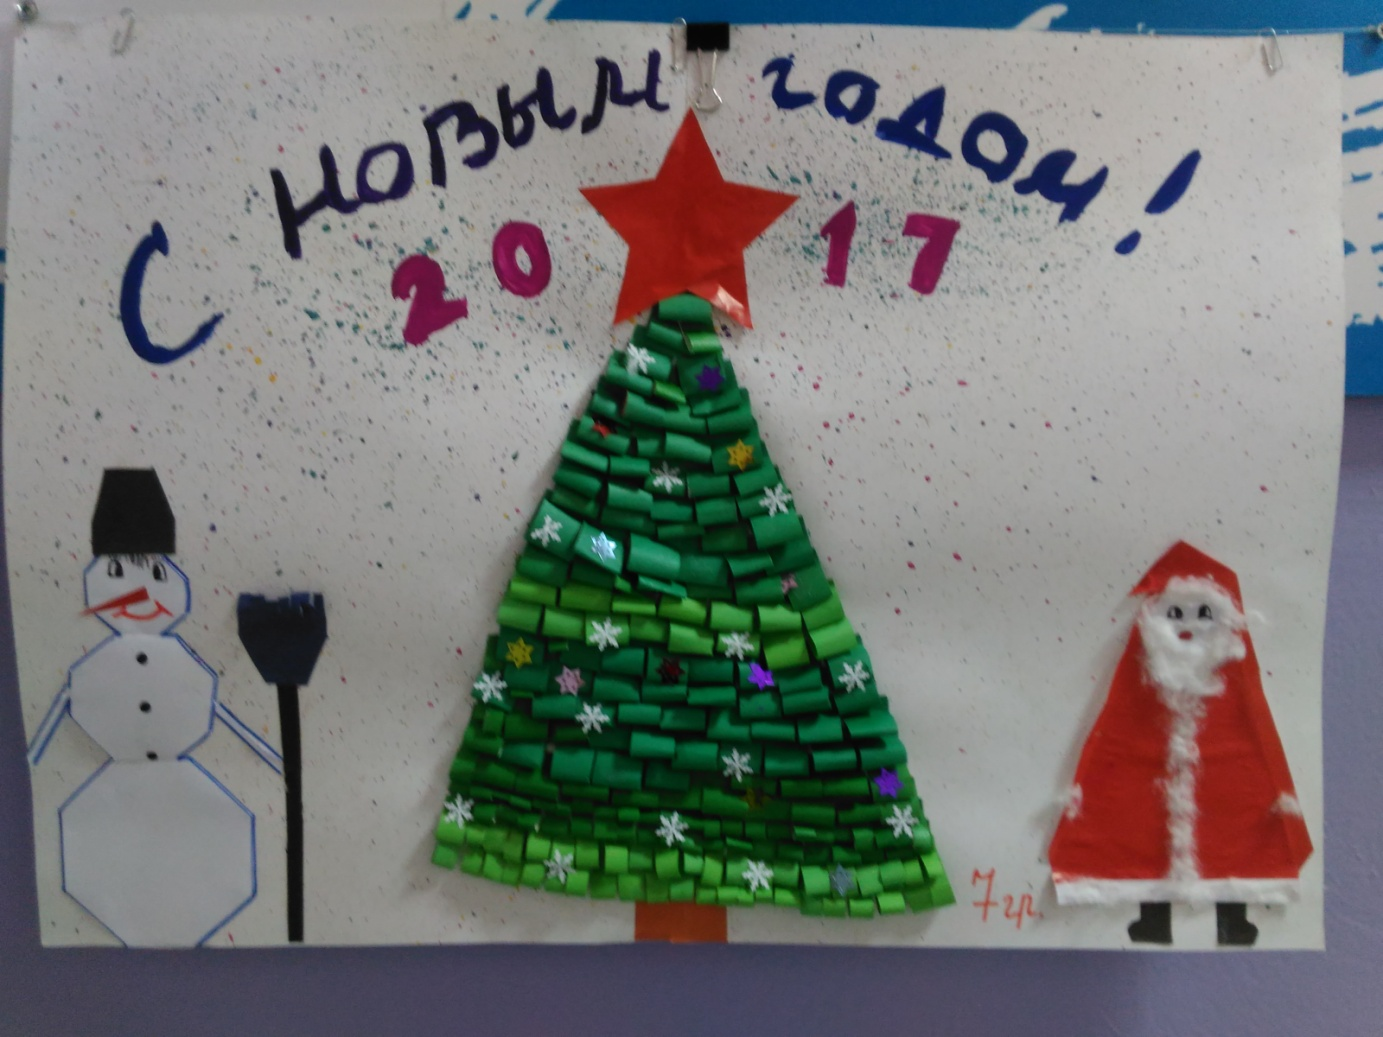 С новым годом!
2017
7 гр.